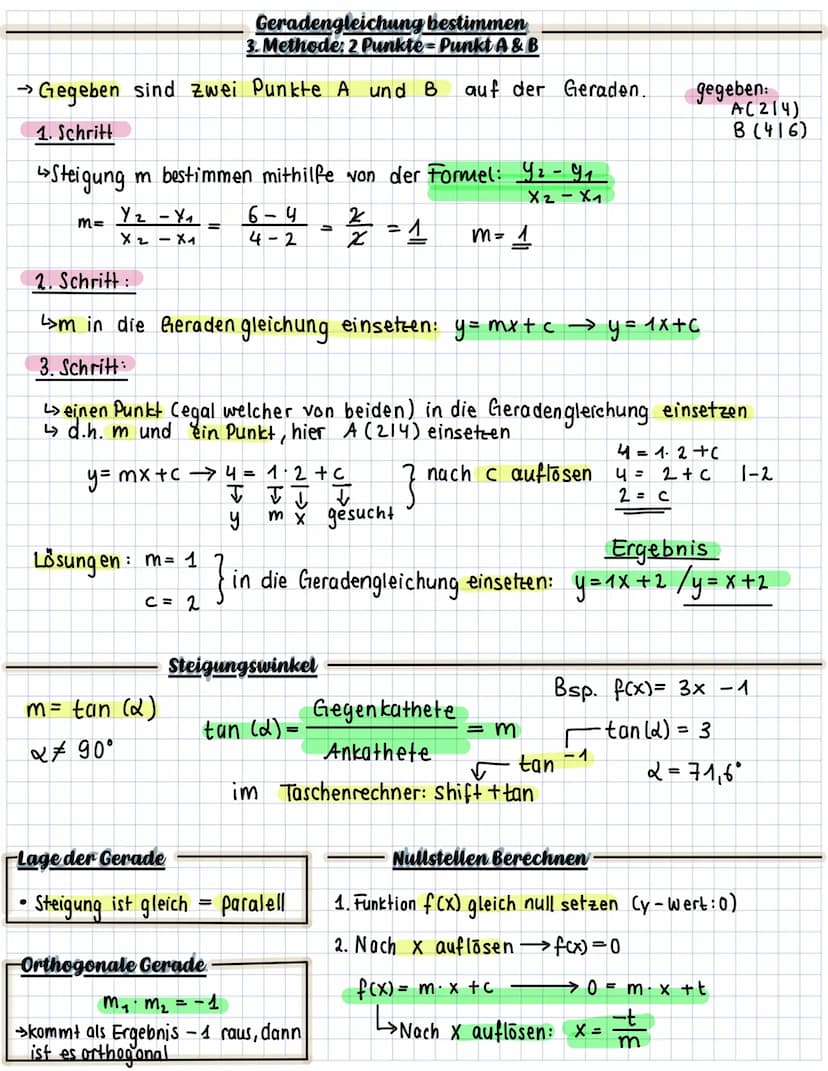 Geradengleichung bestimmen
3. Methode: 2 Punkte = Punkt A & B
→ Gegeben sind zwei Punkte A und B auf der Geraden.
gegeben:
A(2|4)
B(4|6)
1. Schritt
↳ Steigung m bestimmen mithilfe von der Formel: (y₂ - y₁)/(x₂ - x₁)
m = (y₂ - y₁)/(x₂ - x₁) = (6 - 4)/(4 - 2) = 2/2 = 1 m = 1
2. Schritt:
↳ m in die Geradengleichung einsetzen: y = mx + c → y = 1x + c
3. Schritt:
↳ einen Punkt (egal welcher von beiden) in die Geradengleichung einsetzen
↳ d.h. m und ein Punkt, hier A(2|4) einsetzen
y = mx + c → 4 = 1·2 + c } nach c auflösen
↓ ↓ ↓ ↓
y m x gesucht
4 = 1·2 + c
4 = 2 + c |-2
2 = c
Lösungen: m = 1
c = 2
} in die Geradengleichung einsetzen:
Ergebnis
y = 1x + 2 / y = x + 2
Steigungswinkel
m = tan (α)
α ≠ 90°
tan (α) = Gegenkathete/Ankathete = m
Bsp. f(x) = 3x - 1
tan(α) = 3
tan⁻¹
α = 71,6°
im Taschenrechner: shift + tan
Lage der Gerade
• Steigung ist gleich = paralell
Orthogonale Gerade
m₁ · m₂ = -1
→ kommt als Ergebnis -1 raus, dann
ist es orthogonal
Nullstellen Berechnen
1. Funktion f(x) gleich null setzen (y-Wert: 0)
2. Nach x auflösen → f(x) = 0
f(x) = m · x + c → 0 = m · x + t
↳ Nach x auflösen: x = -t/m